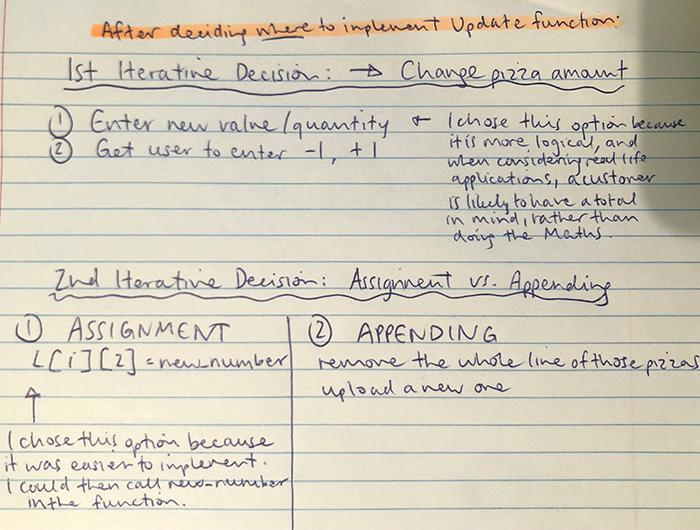 After deciding where to implement Update function:
1st Iterative Decision: → Change pizza amount
① Enter new value/quantity ←
② Get user to enter -1, +1
I chose this option because
it is more logical, and
when considering real life
applications, a customer
is likely to have a total
in mind, rather than
doing the Maths.
2nd Iterative Decision: Assignment vs. Appending
① ASSIGNMENT
L[i][2] = new_number
↑
I chose this option because
it was easier to implement.
I could then call new_number
in the function.
② APPENDING
remove the whole line of those pizzas
upload a new one